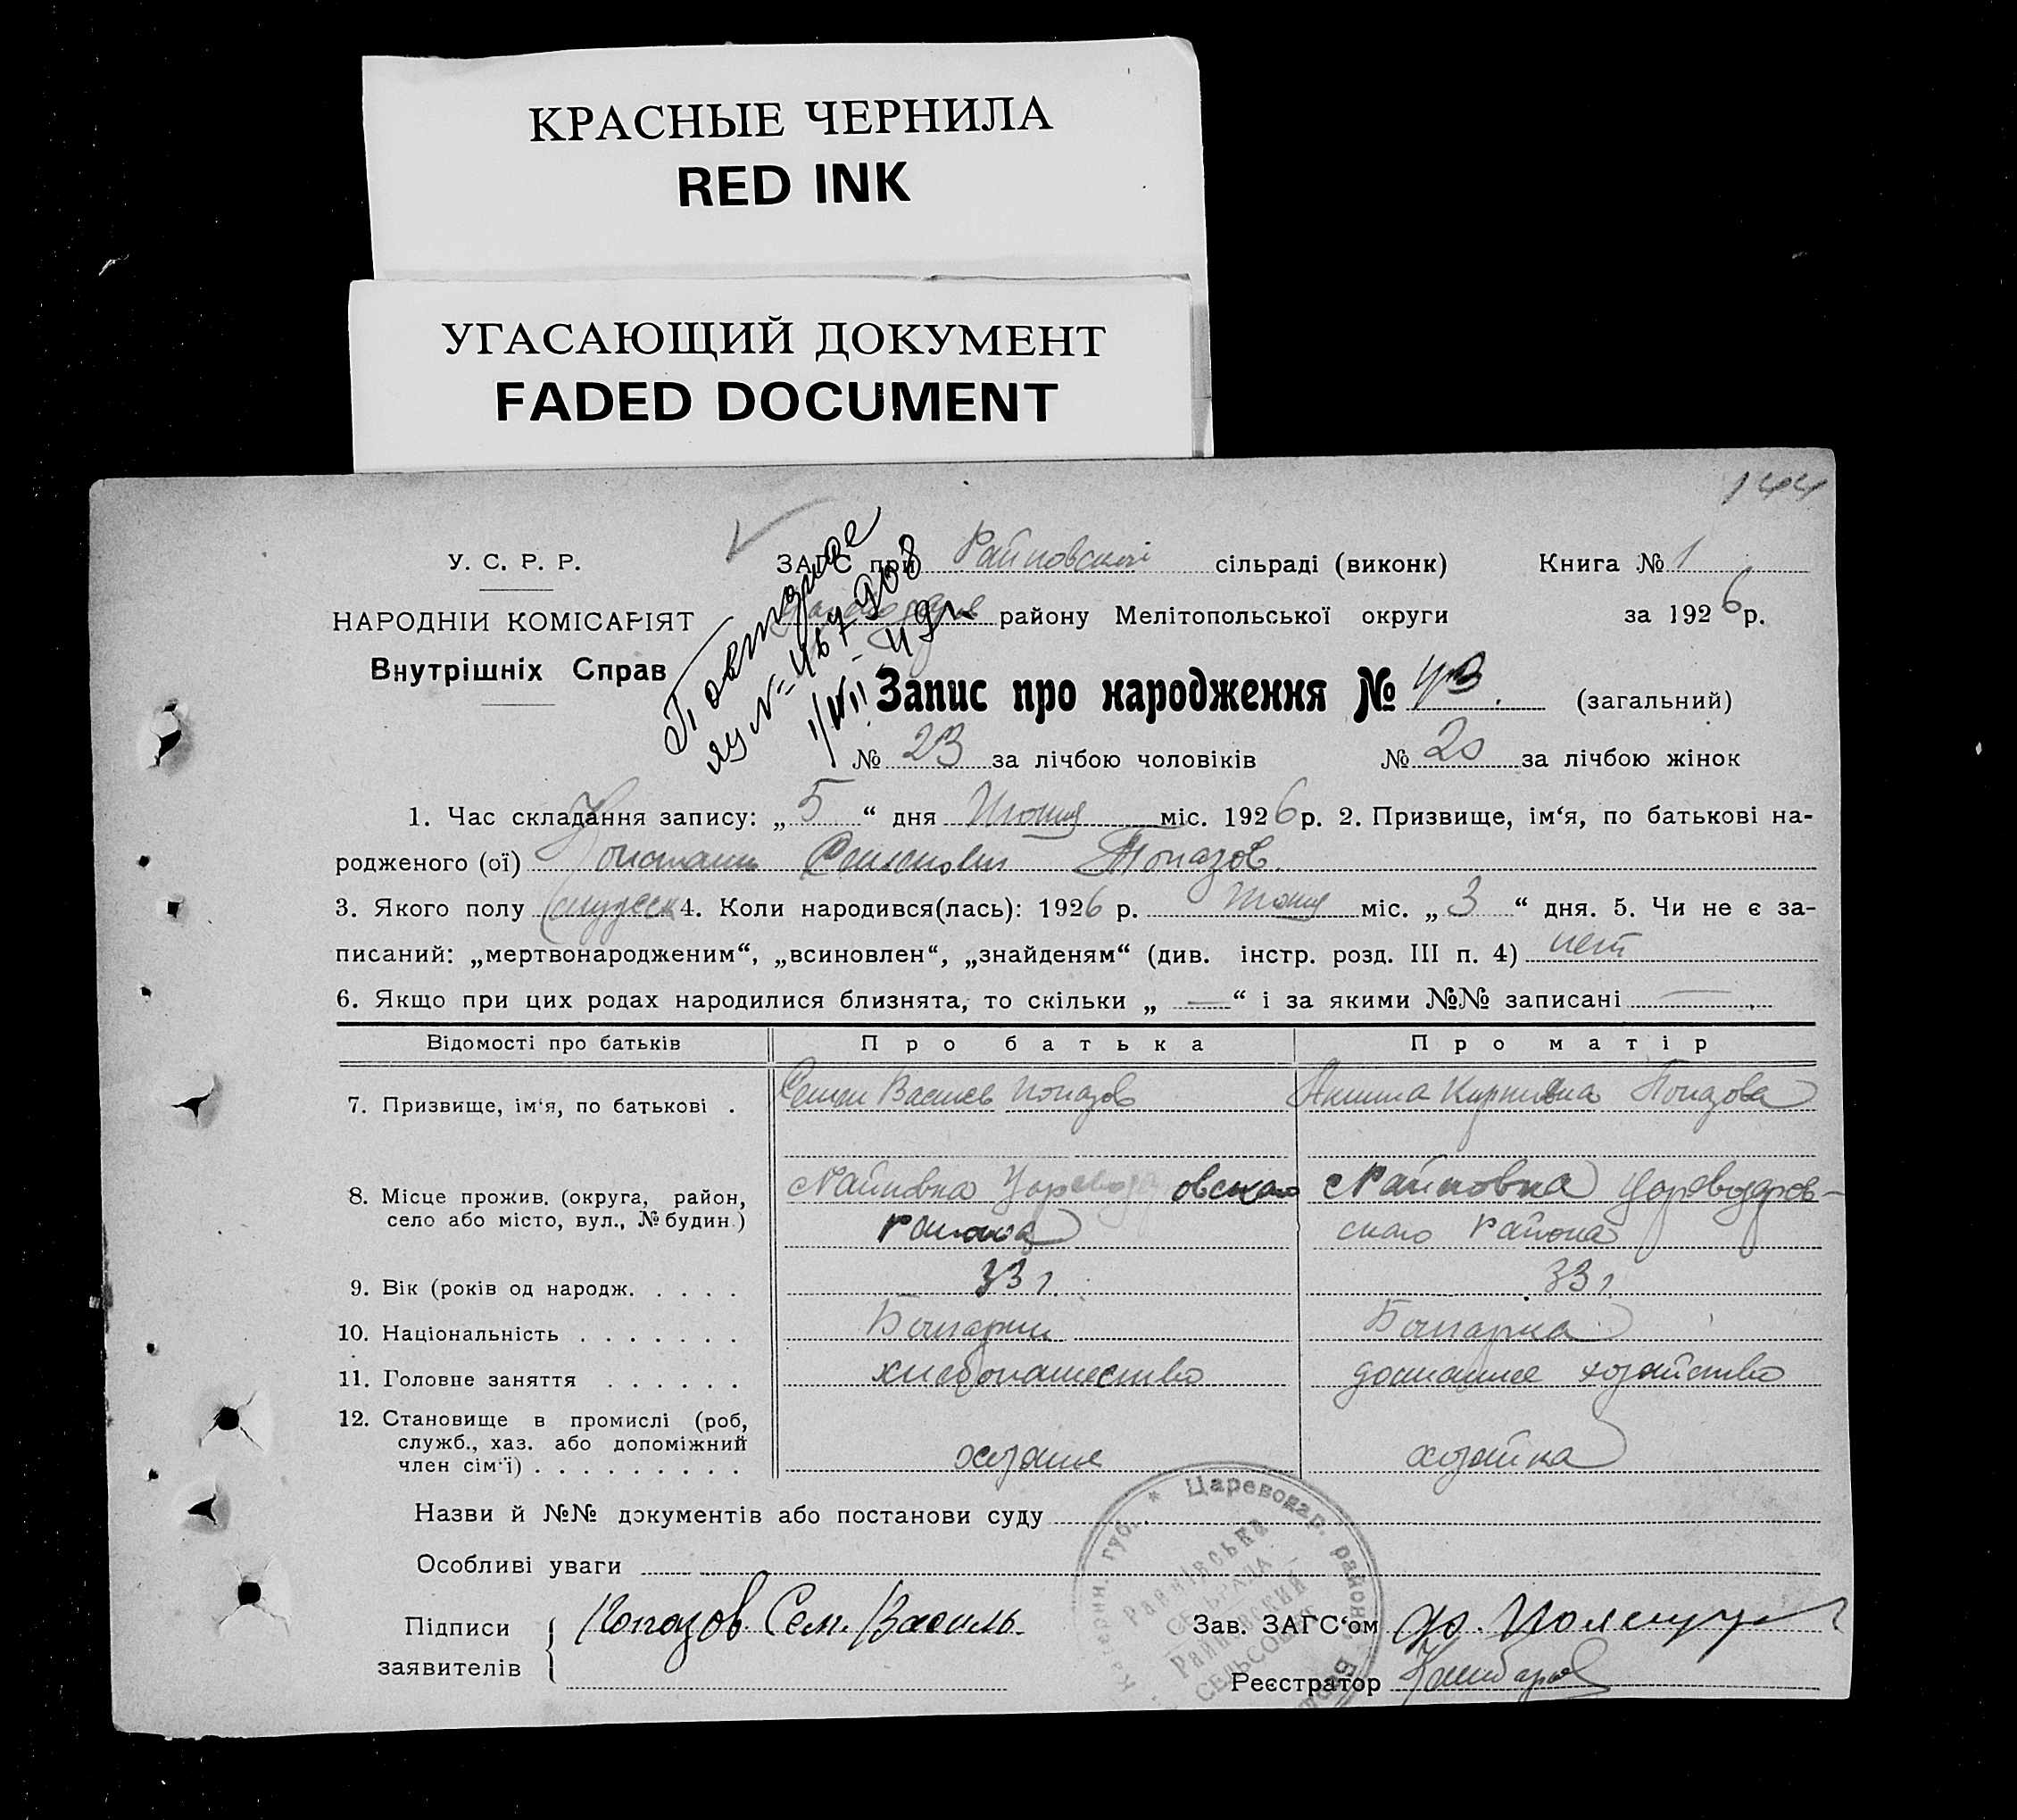 КРАСНЫЕ ЧЕРНИЛА
RED INK
УГАСАЮЩИЙ ДОКУМЕНТ
FADED DOCUMENT
144
У. С. Р. Р.
НАРОДНІИ КОМІСАРІЯТ
Внутрішніх Справ
ЗАГС при Райновской сільраді (виконк) Книга № 1
району Мелітопольської округи за 1926 р.
Повторное
Запис про народження № 43. (загальний)
№ 23 за лічбою чоловіків № 20 за лічбою жінок
1. Час складання запису: „ 5 “ дня Июня міс. 1926 р. 2. Призвище, ім‘я, по батькові на-
родженого (ої) Константин Семенович Топазов.
3. Якого полу мужеск 4. Коли народився(лась): 1926 р. Июня міс. „ 3 “ дня. 5. Чи не є за-
писаний: „мертвонародженим“, „всиновлен“, „знайденям“ (див. інстр. розд. III п. 4) нет
6. Якщо при цих родах народилися близнята, то скільки „ — “ і за якими №№ записані —
Відомості про батьків Про батька Про матір
7. Призвище, ім‘я, по батькові . Семен Васильев Попазов Попазова
8. Місце прожив. (округа, район, село або місто, вул., № будин.)
с Райновка Цареводаровского района
с Райновка Цареводаровского района
9. Вік (років од народж. . . . . 33 г. 33 г.
10. Національність . . . . . . . Болгарин Болгарка
11. Головне заняття . . . . . . хлебопашество домашнее хозяйство
12. Становище в промислі (роб, служб., хаз. або допоміжний член сім‘ї) . . . . . . . . . хозяин хозяйка
Назви й №№ документів або постанови суду
Особливі уваги
Підписи заявителів Попазов Сем. Василь.
Зав. ЗАГС‘ом
Реєстратор
Катерин. губ. * Цареводар. район
Райнівська
СЕЛЬРАДА
Райновский
СЕЛЬСОВЕТ